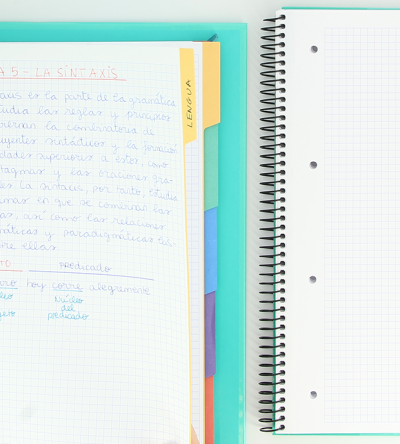 A 5 - LA SINTAXIS
axis es la parte de la gramática
tudia las reglas y principios
biernan la combinatoria de
tuyentes sintácticos y la formación
dades superiores a estos, como
tagmas y las oraciones gra-
les. La sintaxis, por tanto, estudia
rmas en que se combinan las
as, así como las relaciones
máticas y paradigmáticas
re ellas.
TO PREDICADO
hoy corre alegremente
leo Núcleo
del
predicado
LENGUA